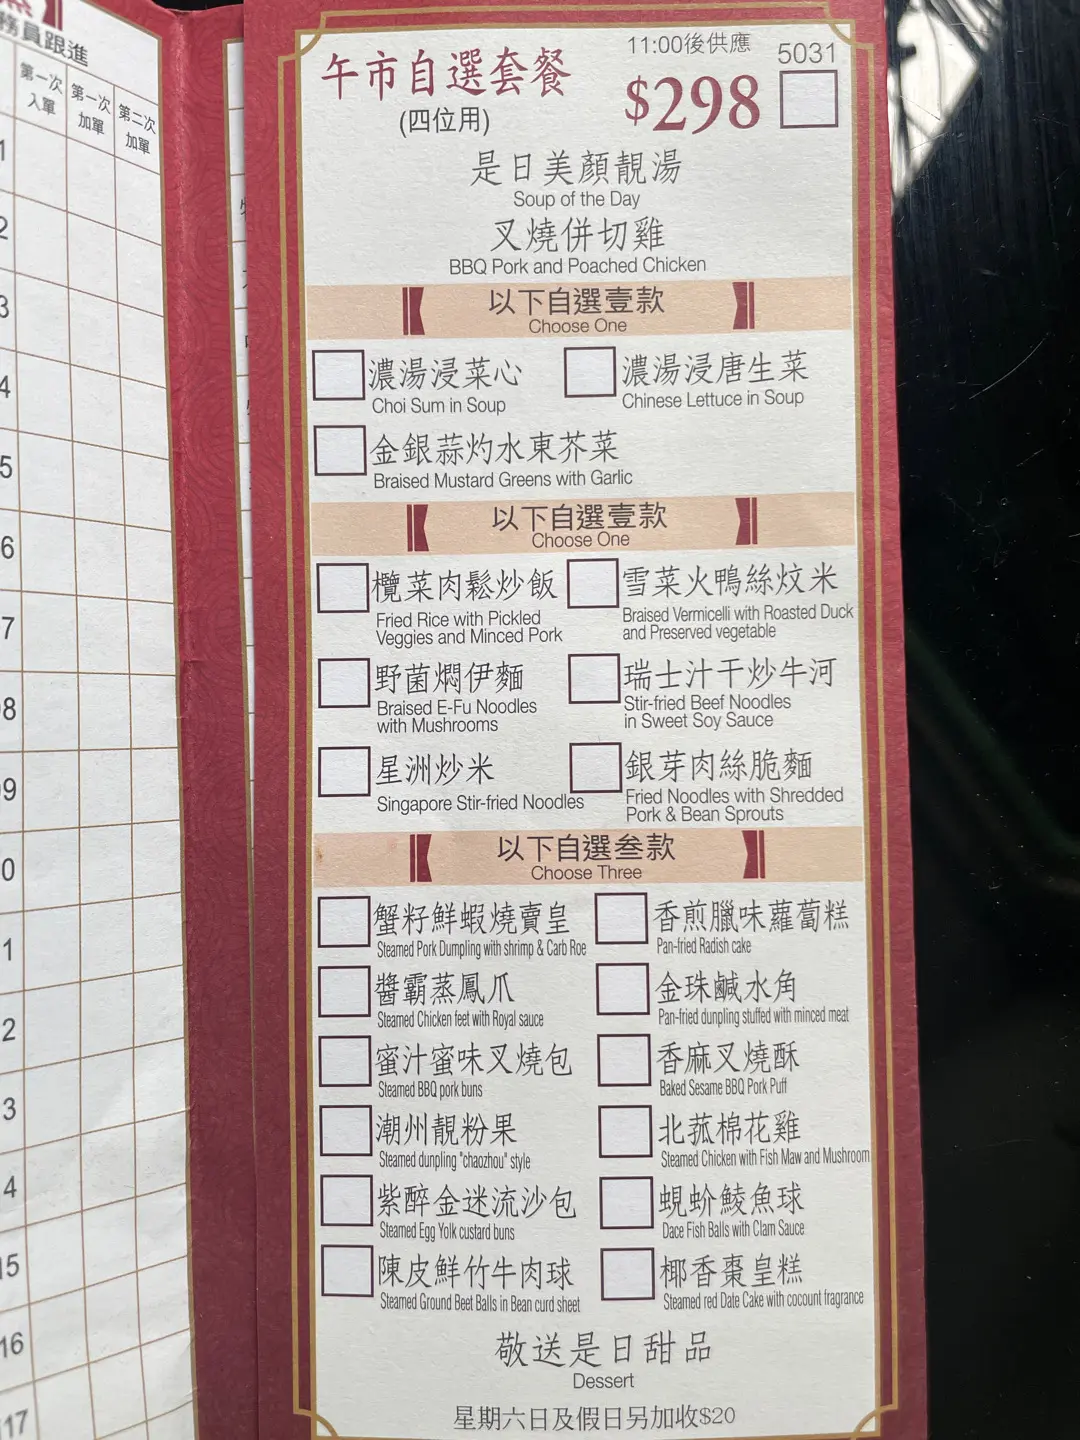 務員跟進
第一次
入單
第一次
加單
第二次
加單
1
2
3
4
5
6
7
8
9
0
1
2
3
4
15
16
17
午市自選套餐
(四位用)
11:00後供應
$298
5031
是日美顏靚湯
Soup of the Day
叉燒併切雞
BBQ Pork and Poached Chicken
以下自選壹款
Choose One
濃湯浸菜心
Choi Sum in Soup
濃湯浸唐生菜
Chinese Lettuce in Soup
金銀蒜灼水東芥菜
Braised Mustard Greens with Garlic
以下自選壹款
Choose One
欖菜肉鬆炒飯
Fried Rice with Pickled
Veggies and Minced Pork
雪菜火鴨絲炆米
Braised Vermicelli with Roasted Duck
and Preserved vegetable
野菌燜伊麵
Braised E-Fu Noodles
with Mushrooms
瑞士汁干炒牛河
Stir-fried Beef Noodles
in Sweet Soy Sauce
星洲炒米
Singapore Stir-fried Noodles
銀芽肉絲脆麵
Fried Noodles with Shredded
Pork & Bean Sprouts
以下自選叁款
Choose Three
蟹籽鮮蝦燒賣皇
Steamed Pork Dumpling with shrimp & Carb Roe
香煎臘味蘿蔔糕
Pan-fried Radish cake
醬霸蒸鳳爪
Steamed Chicken feet with Royal sauce
金珠鹹水角
Pan-fried dunpling stuffed with minced meat
蜜汁蜜味叉燒包
Steamed BBQ pork buns
香麻叉燒酥
Baked Sesame BBQ Pork Puff
潮州靚粉果
Steamed dunpling "chaozhou" style
北菰棉花雞
Steamed Chicken with Fish Maw and Mushroom
紫醉金迷流沙包
Steamed Egg Yolk custard buns
蜆蚧鯪魚球
Dace Fish Balls with Clam Sauce
陳皮鮮竹牛肉球
Steamed Ground Beet Balls in Bean curd sheet
椰香棗皇糕
Steamed red Date Cake with cocount fragrance
敬送是日甜品
Dessert
星期六日及假日另加收$20